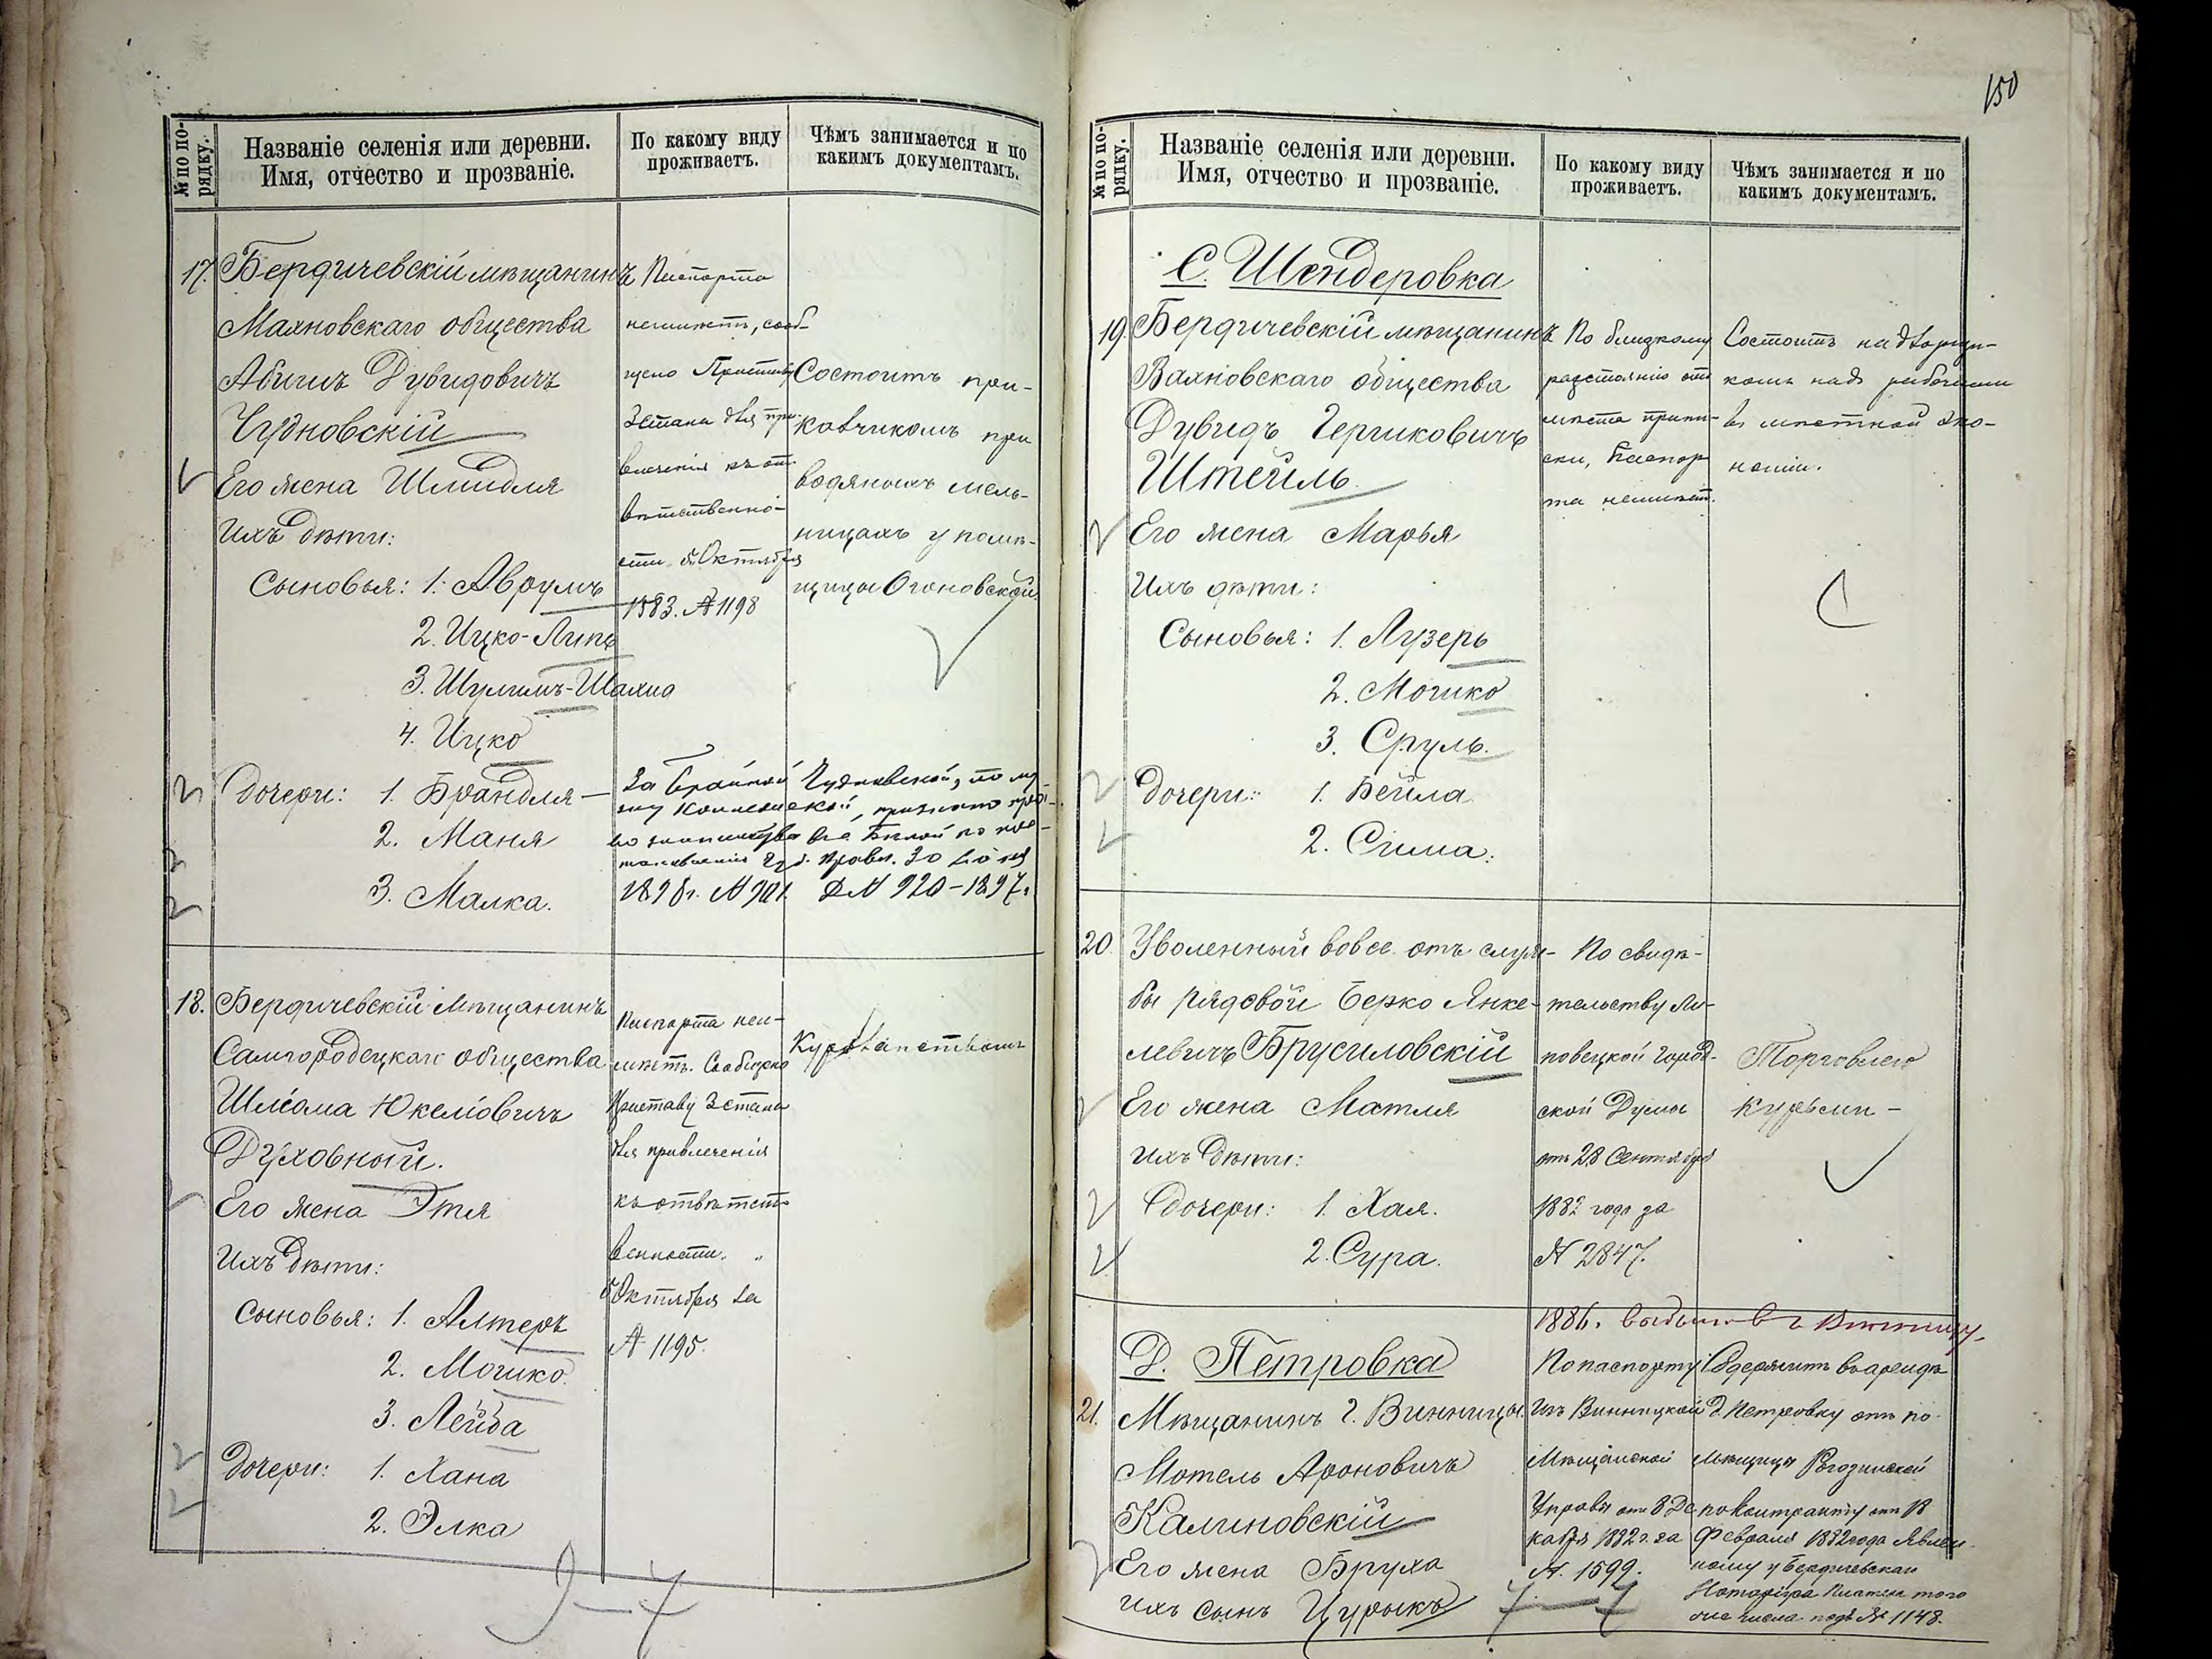 № по по-
рядку.
Названіе селенія или деревни.
Имя, отчество и прозваніе.
По какому виду
проживаетъ.
Чѣмъ занимается и по
какимъ документамъ.
17. Бердичевскій мѣщанинъ
Махновскаго общества
Абишъ Дувидовичъ
Чудновскій
Его жена Шлиндля
Ихъ дѣти:
Сыновья: 1. Аврумъ
2. Ицко-Липъ
3. Шулимъ-Шахно
4. Ицко
Дочери: 1. Брандля
2. Маня
3. Малка.
Паспорта
неимѣетъ, сооб-
щено Приставу
3 стана для при-
влеченія къ от-
вѣтственно-
сти 5 Октября
1883. № 1198
Состоитъ при-
кавчикомъ при
водяныхъ мель-
ницахъ у помѣ-
щицы Огоновской.
1898 г. № 920-1897.
18. Бердичевскій мѣщанинъ
Самгородецкаго общества
Шлёма Юкеліовичъ
Духовный.
Его жена Этля
Ихъ дѣти:
Сыновья: 1. Алтеръ
2. Мошко
3. Лейба
Дочери: 1. Хана
2. Элка
Паспорта неи-
мѣетъ. Сообщено
Приставу 3 стана
для привлеченія
къ отвѣтст-
венности
5 Октября за
№ 1195.
9-7
150
№ по по-
рядку.
Названіе селенія или деревни.
Имя, отчество и прозваніе.
По какому виду
проживаетъ.
Чѣмъ занимается и по
какимъ документамъ.
С. Шендеровка
19. Бердичевскій мѣщанинъ
Вахновскаго общества
Дувидъ Гершковичъ
Штейль
Его жена Марья
Ихъ дѣти:
Сыновья: 1. Лузеръ
2. Мошко
3. Сруль.
Дочери: 1. Бейла
2. Сима.
По близкому
разстоянію отъ
мѣста припи-
ски, Паспор-
та неимѣет.
Состоитъ надворщи-
комъ надъ рабочими
въ мѣстной эко-
номіи.
20. Уволенный вовсе отъ служ-
бы рядовой Берко Янке-
левичъ Брусиловскій
Его жена Матля
Ихъ дѣти:
Дочери: 1. Хая.
2. Сура.
По свидѣ-
тельству Ли-
повецкой Город-
ской Думы
отъ 28 Сентября
1882 года за
№ 2847.
Торговлею
курьми -
1886. выбылъ въ Винницу.
Д. Петровка
21. Мѣщанинъ г. Винницы
Мотель Ароновичъ
Калиновскій
Его жена Бруха
Ихъ сынъ Цурыкъ
По паспорту
Изъ Винницкой
Мѣщанской
Управы отъ 8 Де-
кабря 1882 г. за
№. 1599.
Содержитъ въ арендѣ
д. Петровку отъ по-
мѣщицы Рогозинской
по контракту отъ 18
Февраля 1882 года Явлен-
ному у Бердичевскаго
Нотаріуса Платека того
же числа подъ № 1148.
7-7